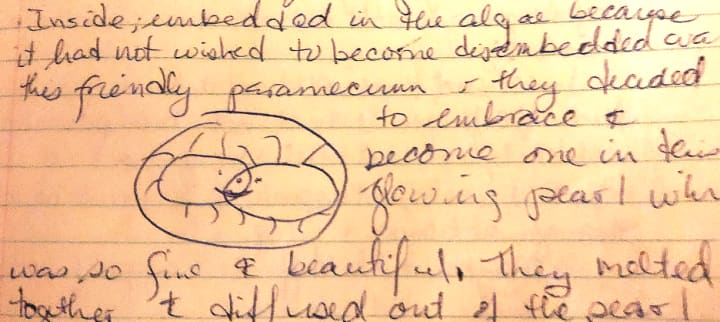 Inside, embedded in the algae because
it had not wished to become disembedded was
this friendly paramecium - they decided
to embrace &
become one in this
glowing pearl
was so fine & beautiful. They melted
together & diffused out of the pearl